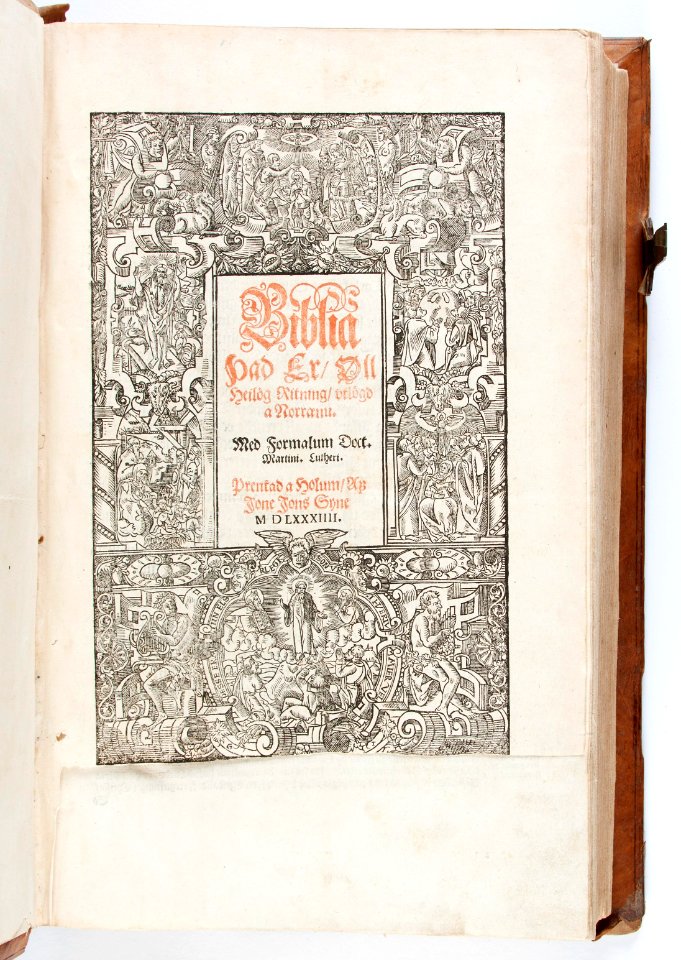 Biblia
Þad Er/ Øll
Heilög Ritning/ vtlögd
a Norrænu.
Med Formalum Doct.
Martini. Lutheri.
Prentad a Holum/ Af
Jone Jons Syne
M D LXXXIIII.